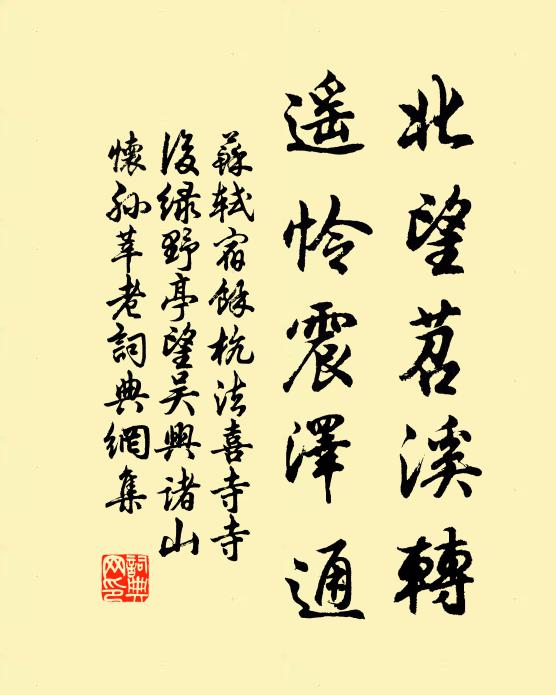 北望苕溪轉
遥憐震澤通
蘇軾宿餘杭法喜寺寺
後緑野亭望吴興諸山
懷孫莘老詞典網集
詞典網印